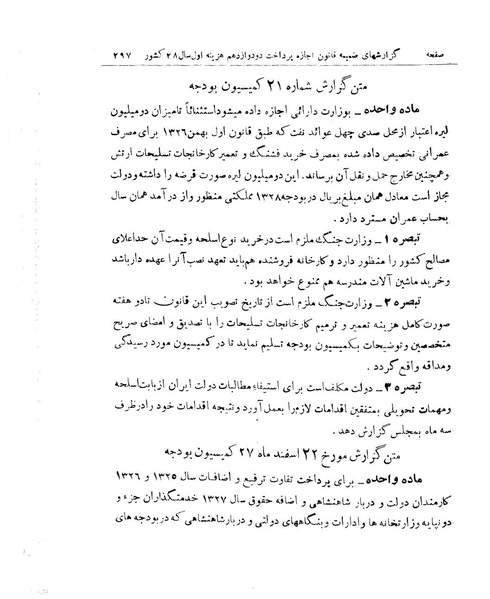 صفحه گزارشهای ضمیمه قانون اجازه پرداخت دودوازدهم هزینه اول سال ۲۸ کشور ۲۹۷
متن گزارش شماره ۲۱ کمیسیون بودجه
ماده واحده - بوزارت دارائی اجازه داده میشود استثنائاً تا میزان دو میلیون
لیره اعتبار از محل صدی چهل عوائد نفت که طبق قانون اول بهمن ۱۳۲۶ برای مصرف
عمرانی تخصیص داده شده بمصرف خرید فشنگ و تعمیر کارخانجات تسلیحات ارتش
و همچنین مخارج حمل و نقل آن برساند. این دو میلیون لیره صورت قرضه را داشته و دولت
مجاز است معادل همان مبلغ بریال در بودجه ۱۳۲۸ مملکتی منظور و از درآمد همان سال
بحساب عمران مسترد دارد .
تبصره ۱ - وزارت جنگ ملزم است در خرید نوع اسلحه و قیمت آن حد اعلای
مصالح کشور را منظور دارد و کارخانه فروشنده هم باید تعهد نصب آنرا عهده دار باشد
و خرید ماشین آلات مندرسه هم ممنوع خواهد بود .
تبصره ۲ - وزارت جنگ ملزم است از تاریخ تصویب این قانون تا دو هفته
صورت کامل هزینه تعمیر و ترمیم کارخانجات تسلیحات را با تصدیق و امضای صریح
متخصصین و توضیحات بکمیسیون بودجه تسلیم نماید تا در کمیسیون مورد رسیدگی
و مداقه واقع گردد .
تبصره ۳ - دولت مکلف است برای استیفاء مطالبات دولت ایران از بابت اسلحه
و مهمات تحویلی بمتفقین اقدامات لازم را بعمل آورد و نتیجه اقدامات خود را در ظرف
سه ماه بمجلس گزارش دهد .
متن گزارش مورخ ۲۲ اسفند ماه ۲۷ کمیسیون بودجه
ماده واحده - برای پرداخت تفاوت ترفیع و اضافات سال ۱۳۲۵ و ۱۳۲۶
کارمندان دولت و دربار شاهنشاهی و اضافه حقوق سال ۱۳۲۷ خدمتگذاران جزء و
دون پایه وزارتخانه ها و ادارات و بنگاههای دولتی و دربار شاهنشاهی که در بودجه های